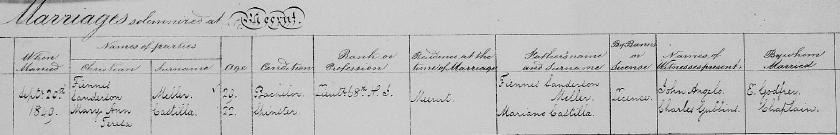 Marriages solemnized at Meerut.
When Married
Names of parties
Christian
Surname
Age
Condition
Rank or Profession
Residence at the time of Marriage
Father's name and Surname
By Banns or License
Names of Witnesses present
By whom Married
Septr 20th 1849.
Fiennes Sanderson
Miller
29.
Bachelor
N. I.
Meerut.
Fiennes Sanderson Miller.
License.
John Angelo.
E. Godfrey
Mary Ann Teresa
Castilla.
22.
Spinster
Mariano Castilla.
Charles Gubbins.
Chaplain.